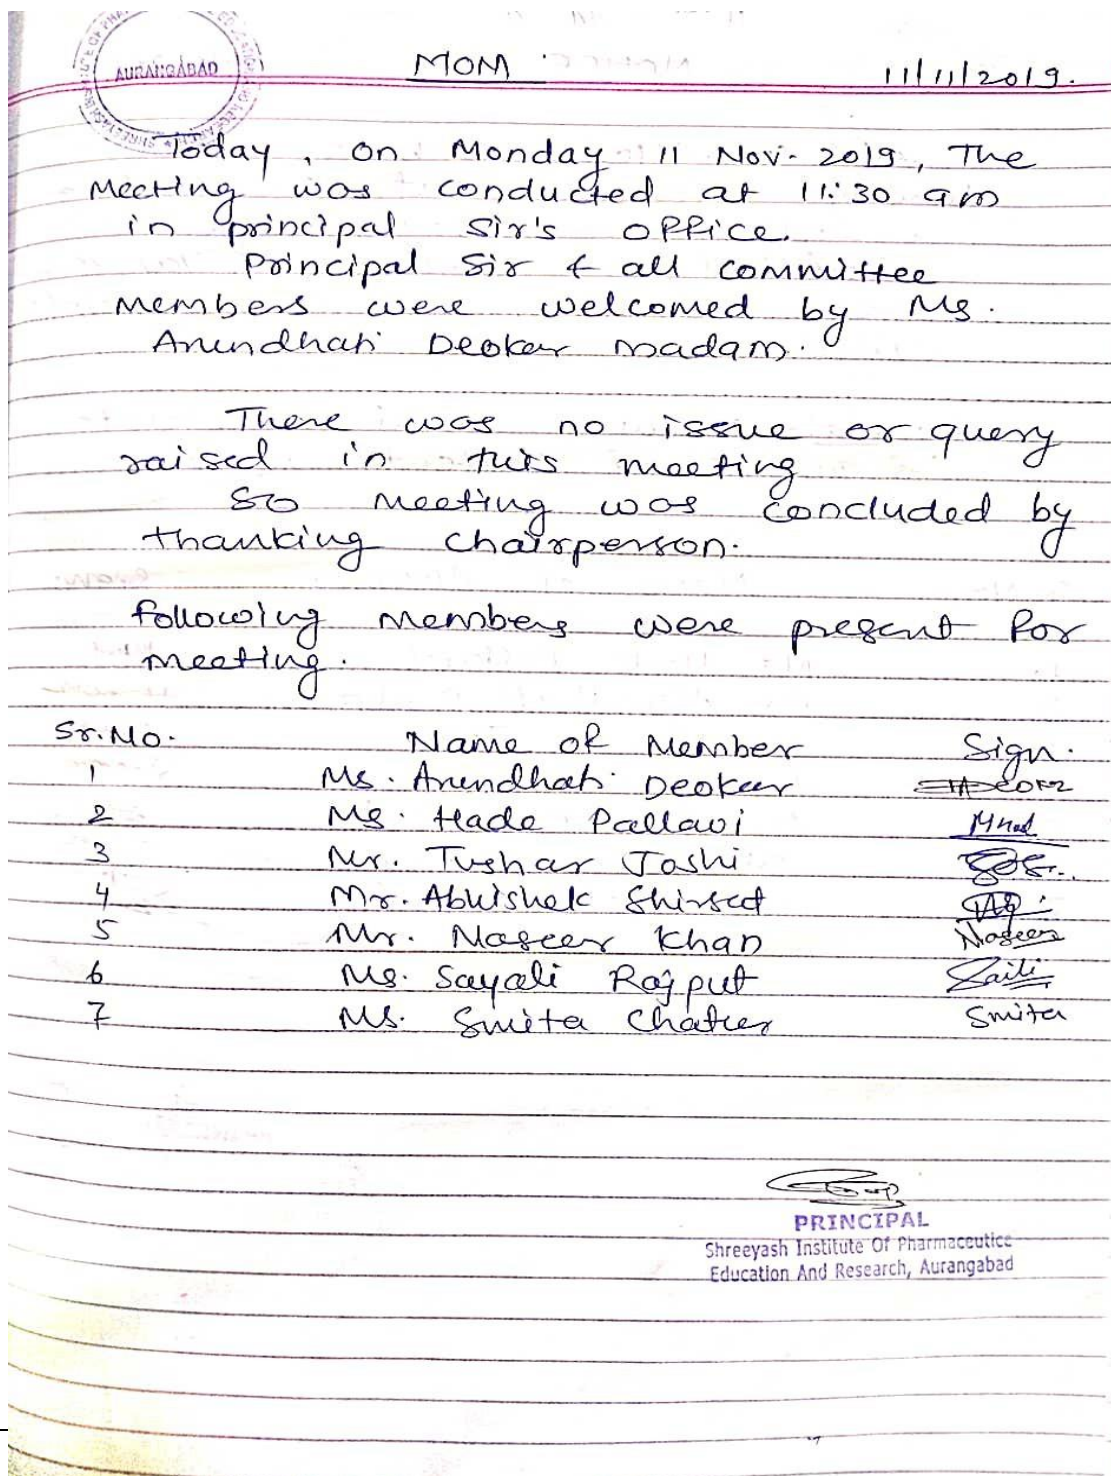 AURANGABAD
MOM
11/11/2019.
Today, on Monday 11 Nov. 2019, The
Meeting was conducted at 11:30 am
in principal Sir's office.
Principal Sir & all committee
members were welcomed by Ms.
Arundhati Deokar madam.
There was no issue or query
raised in this meeting
So meeting was concluded by
thanking chairperson.
following members were present for
meeting.
Sr.No. Name of Member Sign.
1 Ms. Arundhati Deokar
2 Ms. Hade Pallavi
3 Mr. Tushar Joshi
4 Mr. Abhishek Shirsat
5 Mr. Naseer Khan Naseer
6 Ms. Sayali Rajput
7 Ms. Smita Smita
PRINCIPAL
Shreeyash Institute Of Pharmaceutice
Education And Research, Aurangabad